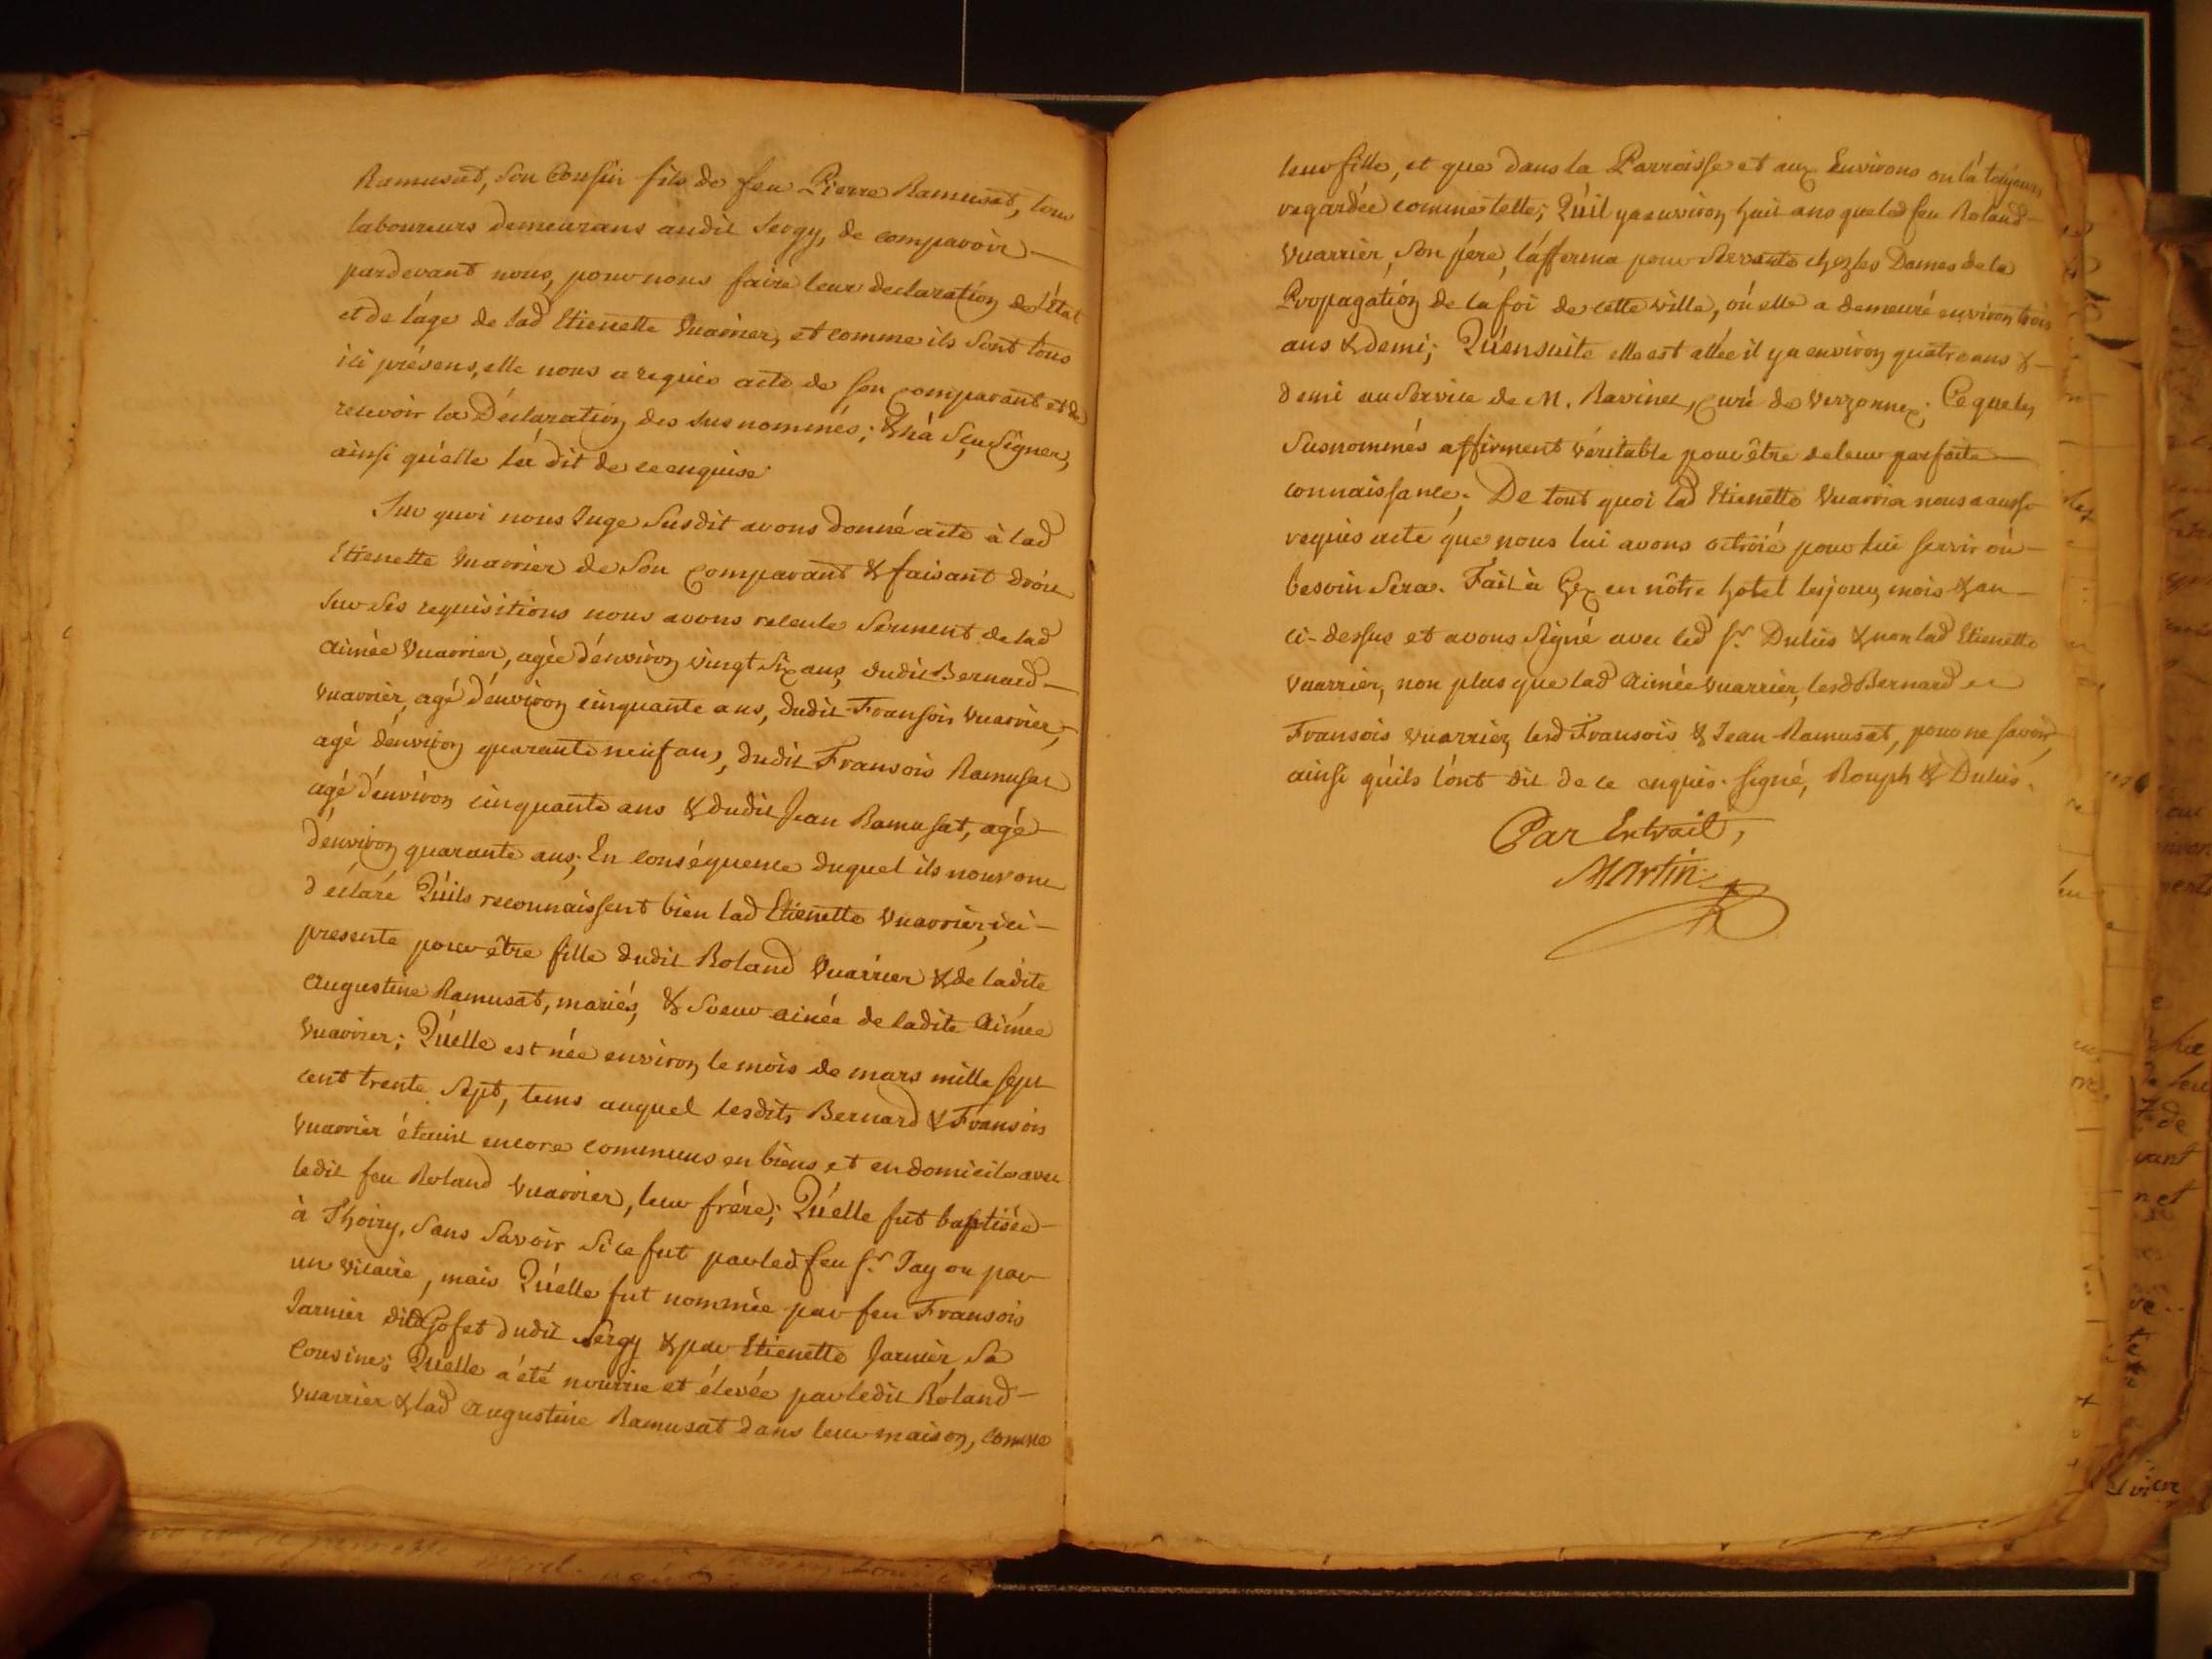 Ramusat, son Cousin fils de feu Pierre Ramusat, tous
laboureurs demeurans audit Sergy, de comparoir
pardevant nous, pour nous faire leur declaration de l'État
et de l'áge de lad Etienette Vuarrier, et comme ils sont tous
ici présens, elle nous a requis acte de son comparant et de
recevoir la Déclaration des susnommés; & n'a sçu signer,
ainsi qu'elle l'a dit de ce enquise
Sur quoi nous Juge susdit avons donné acte à lad
Etienette Vuarrier de son comparant & faisant droit
sur ses requisitions nous avons recu le serment de lad
Aimée Vuarrier, agée d'environ vingt six ans, dudit Bernard
Vuarrier, agé d'environ cinquante ans, dudit Fransois Vuarrier,
agé d'environ quarante neuf ans, dudit Fransois Ramusat
agé d'environ cinquante ans & dudit Jean Ramusat, agé
d'environ quarante ans; En conséquence duquel ils nous ont
déclaré Qu'ils reconnaissent bien lad Etienette Vuarrier, ici
presente pour être fille dudit Roland Vuarrier & de ladite
Augustine Ramusat, mariés, & soeur ainée de ladite Aimée
Vuarrier; Qu'elle est née environ le mois de mars mille sept
cent trente sept, tems auquel lesdits Bernard & Fransois
Vuarrier étaint encore communs en biens et en domicile avec
ledit feu Roland Vuarrier, leur frére; Qu'elle fut baptisée
à Thoiry, sans savoir si ce fut par led feu Sr. Jay ou par
un vicaire, mais Qu'elle fut nommée par feu Fransois
Jarnier dit Gofet dudit Sergy & par Etienette Jarnier, sa
Cousine; Qu'elle a été nourrie et élevée par ledit Roland
Vuarrier & lad Augustine Ramusat dans leur maison, comme
leur fille, et que dans la Parroisse et aux Environs on l'a toujours
regardée comme telle; Qu'il y a environ huit ans que led feu Roland
Vuarrier, son pére, l'afferma pour servante chez les Dames de la
Propagation de la foi de cette ville, où elle a demeuré environ trois
ans & demi; Qu'ensuite elle est allée il y a environ quatre ans &
demi au service de M. Ravinet, curé de Verzonnex. Ce que les
susnommés affirment véritable pour être de leur parfaite
connaissance; De tout quoi lad Etienette Vuarrier nous a aussi
requis acte que nous lui avons octroié pour lui servir où
besoin sera. Fait à Gex en nôtre hotel les jour, mois & an
ci-dessus et avons signé avec led Sr. Dulus & non lad Etienette
Vuarrier, non plus que lad Aimée Vuarrier, lesd Bernard et
Fransois Vuarrier, lesd Fransois & Jean Ramusat, pour ne savoir,
ainsi qu'ils l'ont dit de ce enquis. signé, Rouph & Dulus.
Par Extrait,
Martin